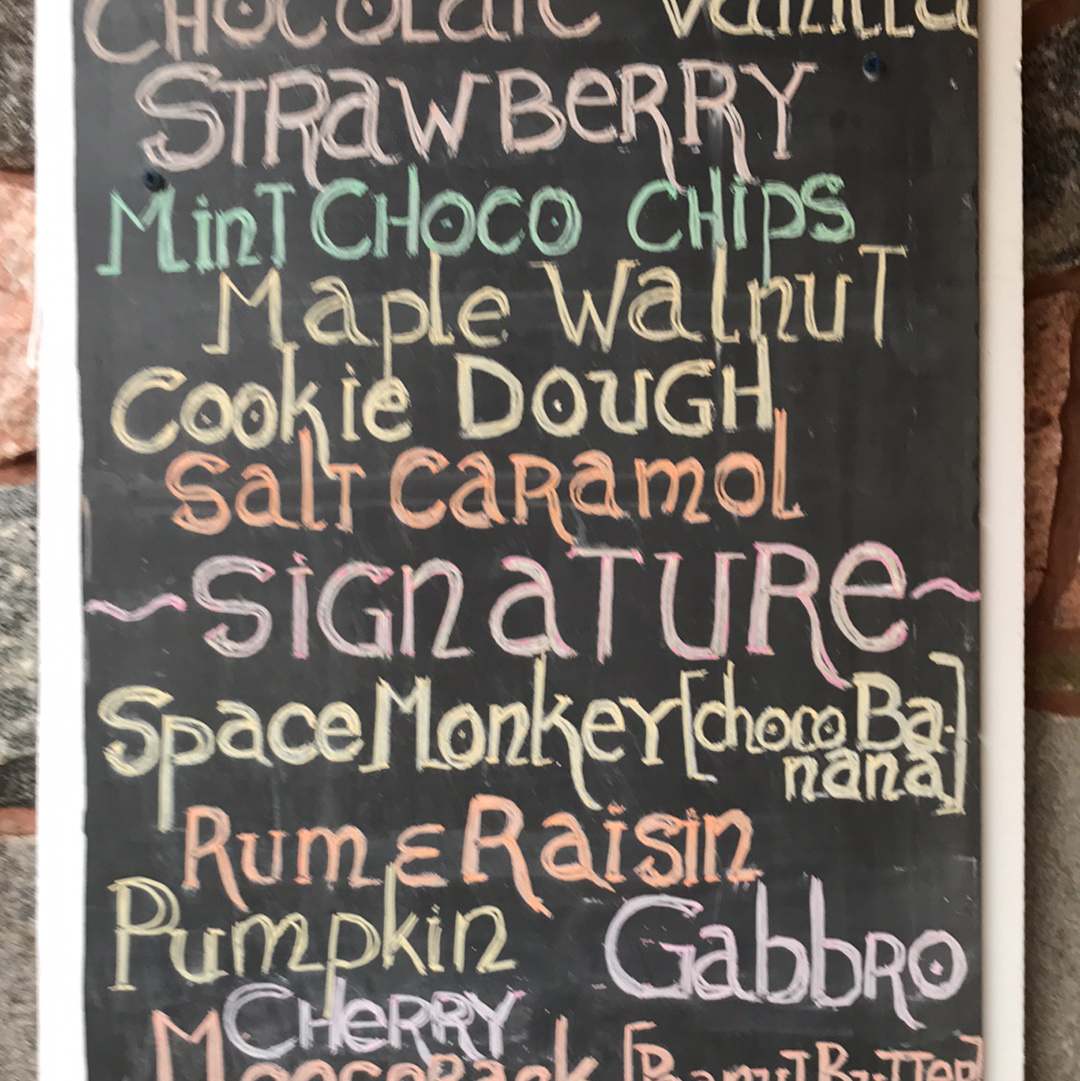 CHOCOLATE Vanilla
STRawBeRRY
MinT CHOCO CHips
Maple WalnuT
Cookie DouGH
SalT CaRamol
~SiGnaTURe~
Space Monkey [choco Ba-
nana]
Rum & Raisin
Pumpkin GabbRO
CHeRRY
Moosepack [PeanuT BuTTer]